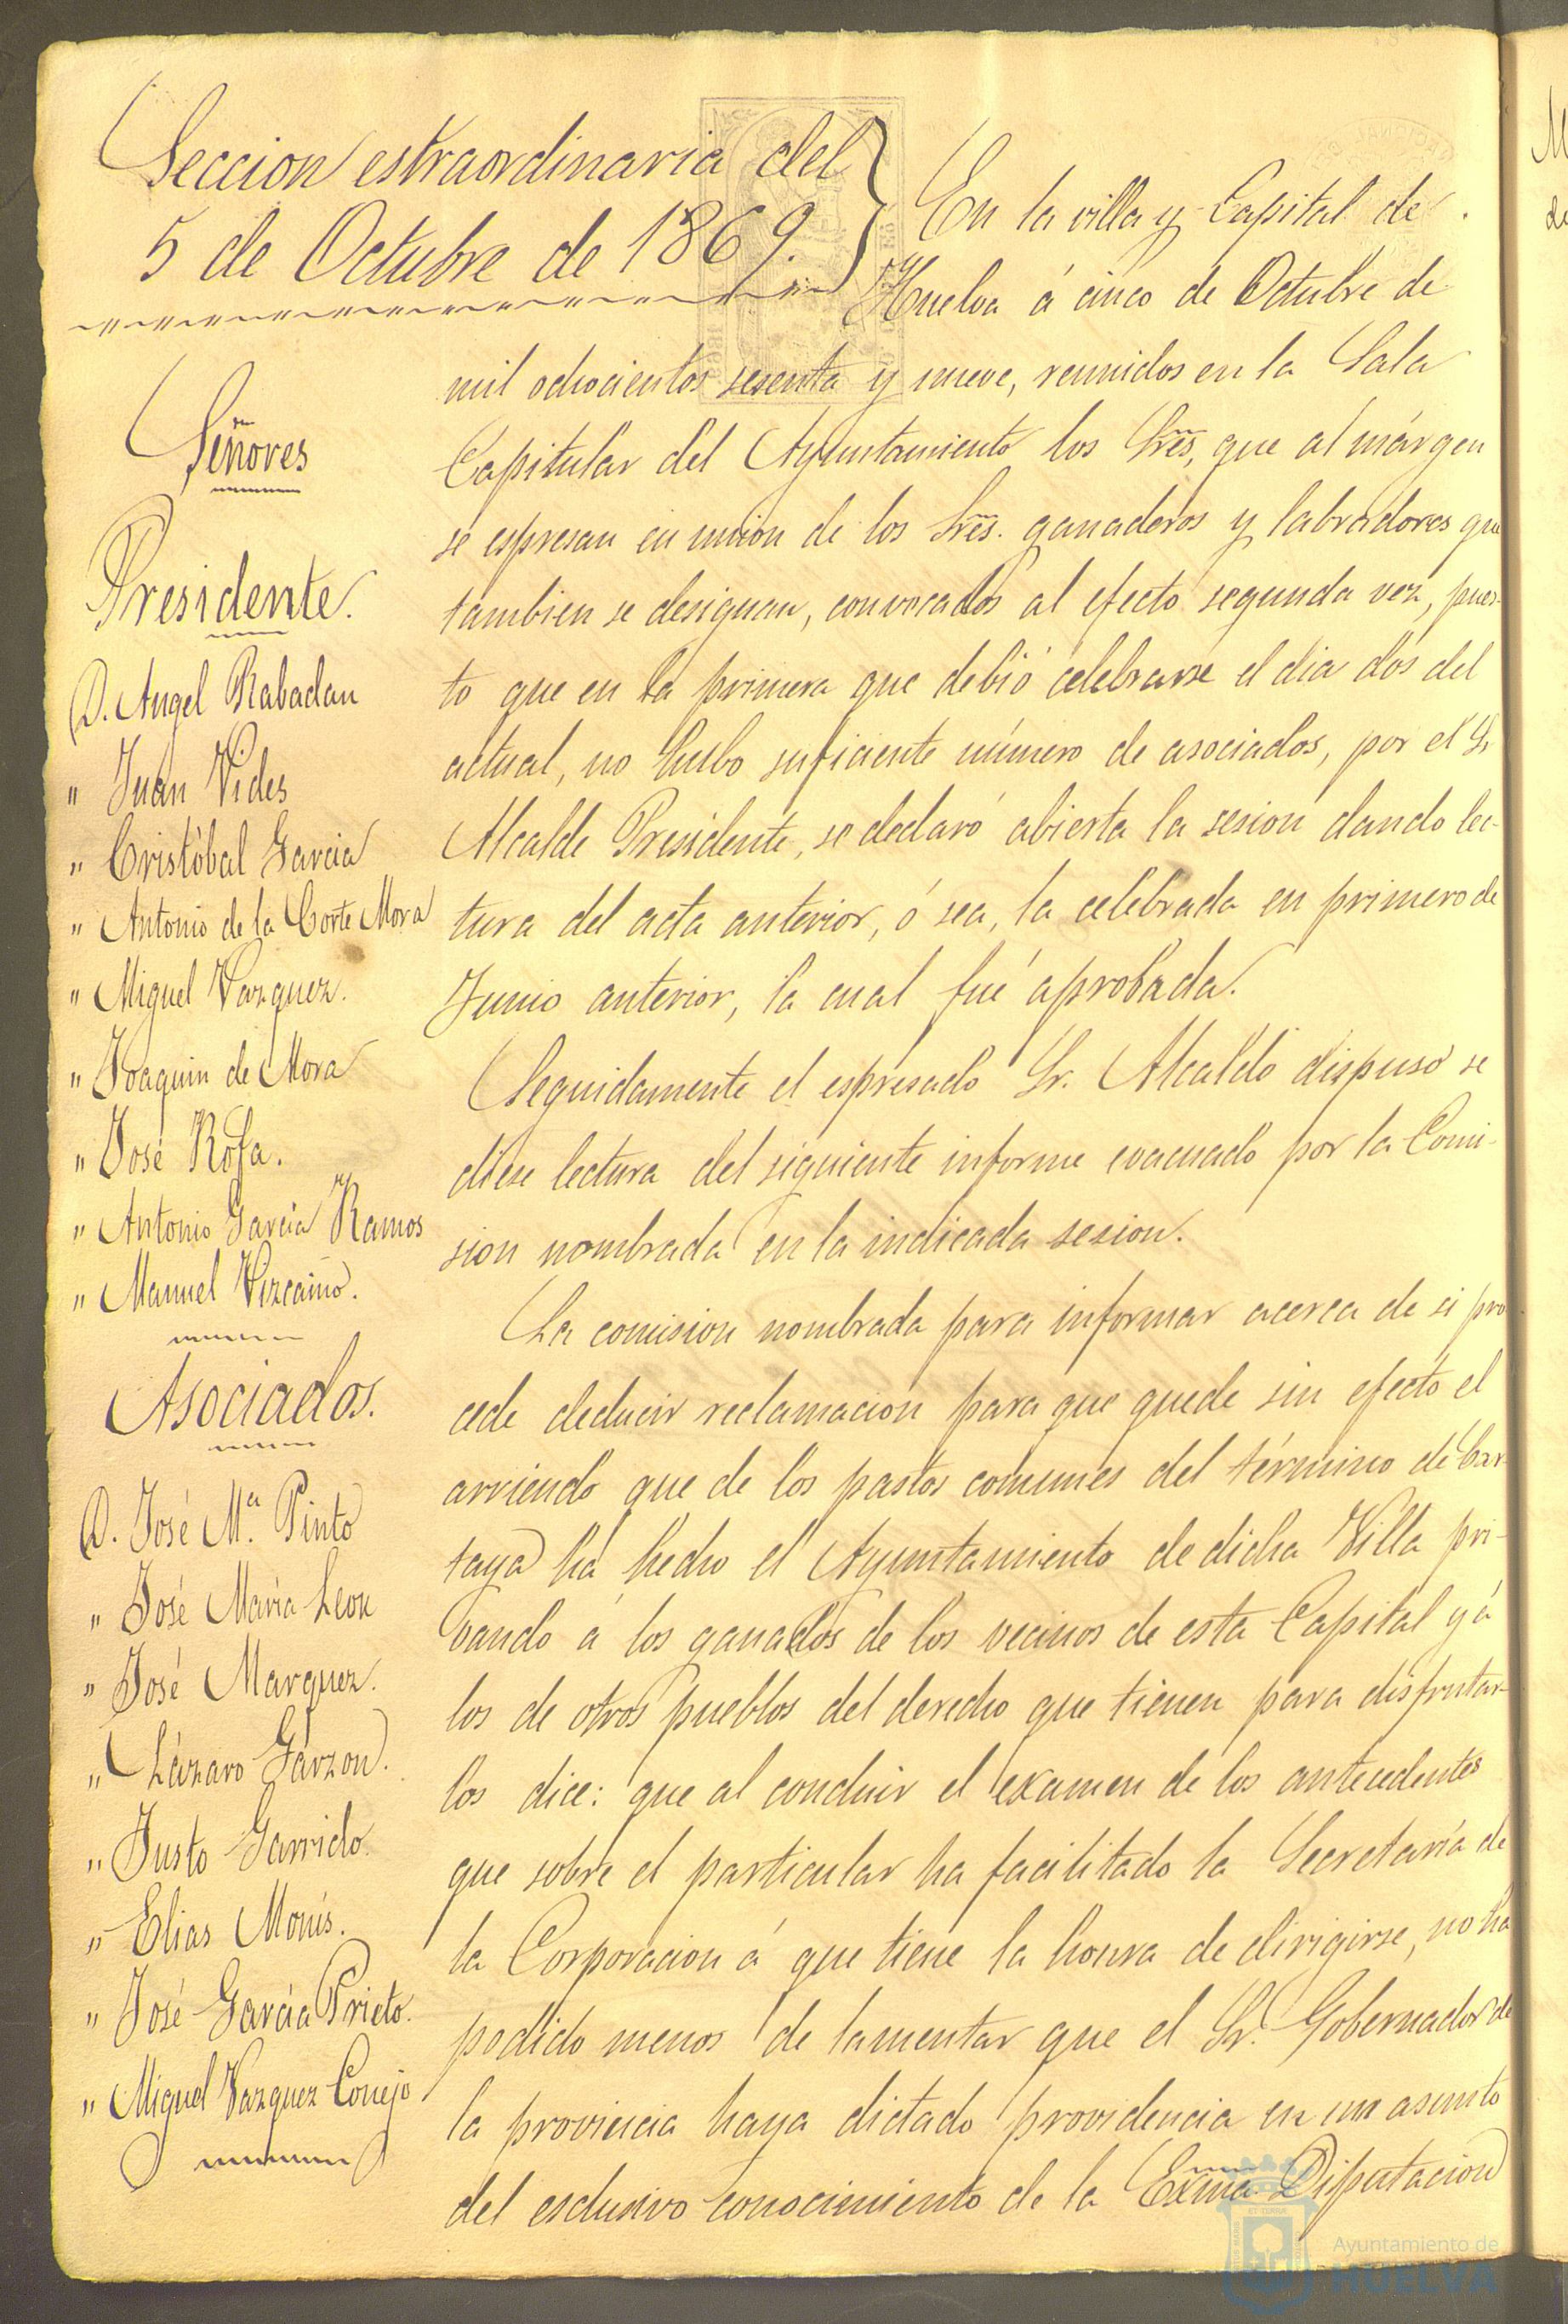 Seccion estraordinaria del
5 de Octubre de 1869.
Señores
Presidente.
D. Angel Rabadan
" Juan Vides
" Cristóbal Garcia
" Antonio de la Corte Mora
" Miguel Vazquez.
" Joaquin de Mora
" José Rofa.
" Antonio Garcia Ramos
" Manuel Vizcaino.
Asociados.
D. José Mª. Pinto
" José Maria Leon
" José Marquez.
" Lázaro Garzon.
" Justo Garrido.
" Elias Monis.
" José Garcia Prieto.
" Miguel Vazquez Conejo
En la villa y Capital de
Huelva á cinco de Octubre de
mil ochocientos sesenta y nueve, reunidos en la Sala
Capitular del Ayuntamiento los Sres, que al márgen
se espresan en union de los Sres. ganaderos y labradores que
tambien se designan, convocados al efecto segunda vez, pues-
to que en la primera que debió celebrarse el dia dos del
actual, no hubo suficiente número de asociados, por el Sr
Alcalde Presidente, se declaró abierta la sesion dando lec-
tura del acta anterior, ó sea, la celebrada en primero de
Junio anterior, la cual fué aprobada.
Seguidamente el espresado Sr. Alcalde dispuso se
diese lectura del siguiente informe evacuado por la Comi-
sion nombrada en la indicada sesion.
La comision nombrada para informar acerca de si pro
cede deducir reclamacion para que quede sin efecto el
arriendo que de los pastos comunes del término de Car-
taya há hecho el Ayuntamiento de dicha Villa pri-
vando á los ganados de los vecinos de esta Capital y á
los de otros pueblos del derecho que tienen para disfrutar-
los dice: que al concluir el examen de los antecedentes
que sobre el particular ha facilitado la Secretaria de
la Corporacion á que tiene la honra de dirigirse, no ha
podido menos de lamentar que el Sr. Gobernador de
la provincia haya dictado providencia en un asunto
del esclusivo conocimiento de la Exma Diputacion
Ayuntamiento de
HUELVA